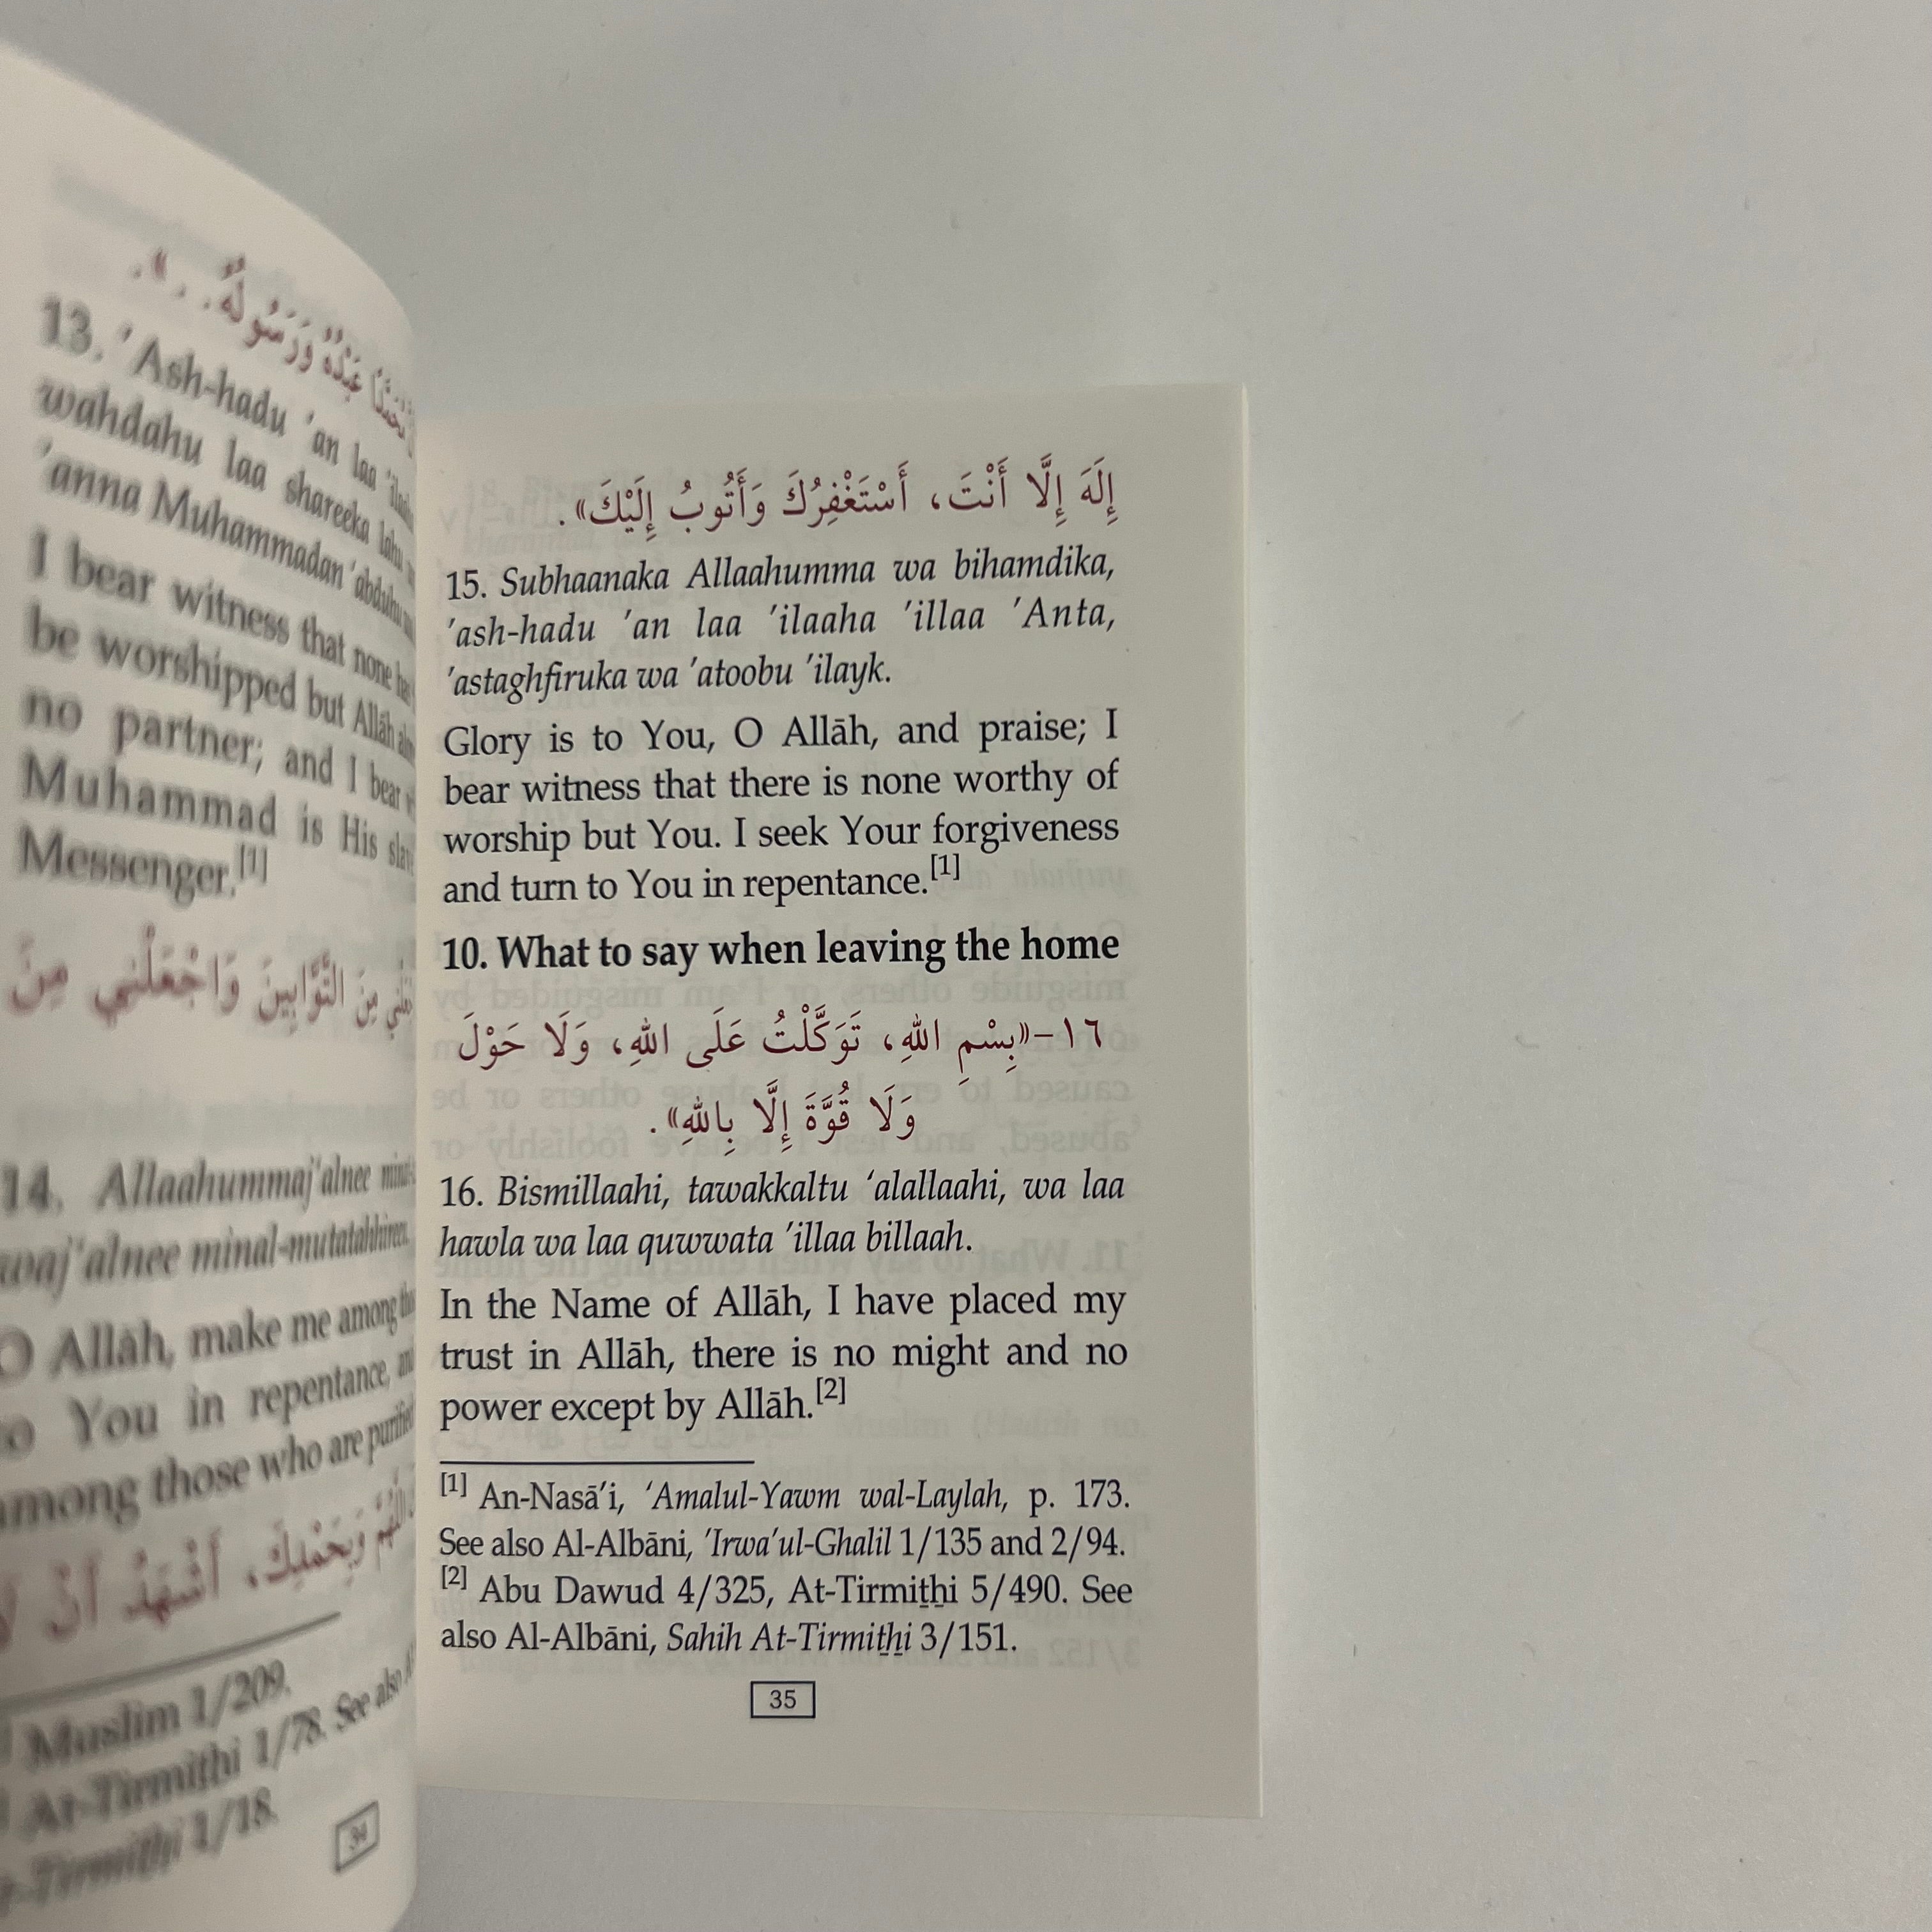 عَبْدُهُ وَرَسُولُهُ. . .».
13. ’Ash-hadu ’an laa ’ilaaha
wahdahu laa shareeka lahu
’anna Muhammadan ’abduhu
I bear witness that none has
be worshipped but Allāh alone
no partner; and I bear
Muhammad is His slave
Messenger.[1]
مِنَ التَّوَّابِينَ وَاجْعَلْنِي مِنَ
14. Allaahummaj‘alnee
waj‘alnee minal-mutatahhireen.
O Allāh, make me among
to You in repentance, and
among those who are purified
وَبِحَمْدِكَ، أَشْهَدُ أَنْ لَا
Muslim 1/209.
At-Tirmiṯẖi 1/78. See also
At-Tirmiṯẖi 1/18.
34
إِلَهَ إِلَّا أَنْتَ، أَسْتَغْفِرُكَ وَأَتُوبُ إِلَيْكَ».
15. Subhaanaka Allaahumma wa bihamdika,
’ash-hadu ’an laa ’ilaaha ’illaa ’Anta,
’astaghfiruka wa ’atoobu ’ilayk.
Glory is to You, O Allāh, and praise; I
bear witness that there is none worthy of
worship but You. I seek Your forgiveness
and turn to You in repentance.[1]
10. What to say when leaving the home
١٦–«بِسْمِ اللهِ، تَوَكَّلْتُ عَلَى اللهِ، وَلَا حَوْلَ
وَلَا قُوَّةَ إِلَّا بِاللهِ».
16. Bismillaahi, tawakkaltu ‘alallaahi, wa laa
hawla wa laa quwwata ’illaa billaah.
In the Name of Allāh, I have placed my
trust in Allāh, there is no might and no
power except by Allāh.[2]
[1] An-Nasā’i, ‘Amalul-Yawm wal-Laylah, p. 173.
See also Al-Albāni, ’Irwa’ul-Ghalil 1/135 and 2/94.
[2] Abu Dawud 4/325, At-Tirmiṯẖi 5/490. See
also Al-Albāni, Sahih At-Tirmiṯẖi 3/151.
35